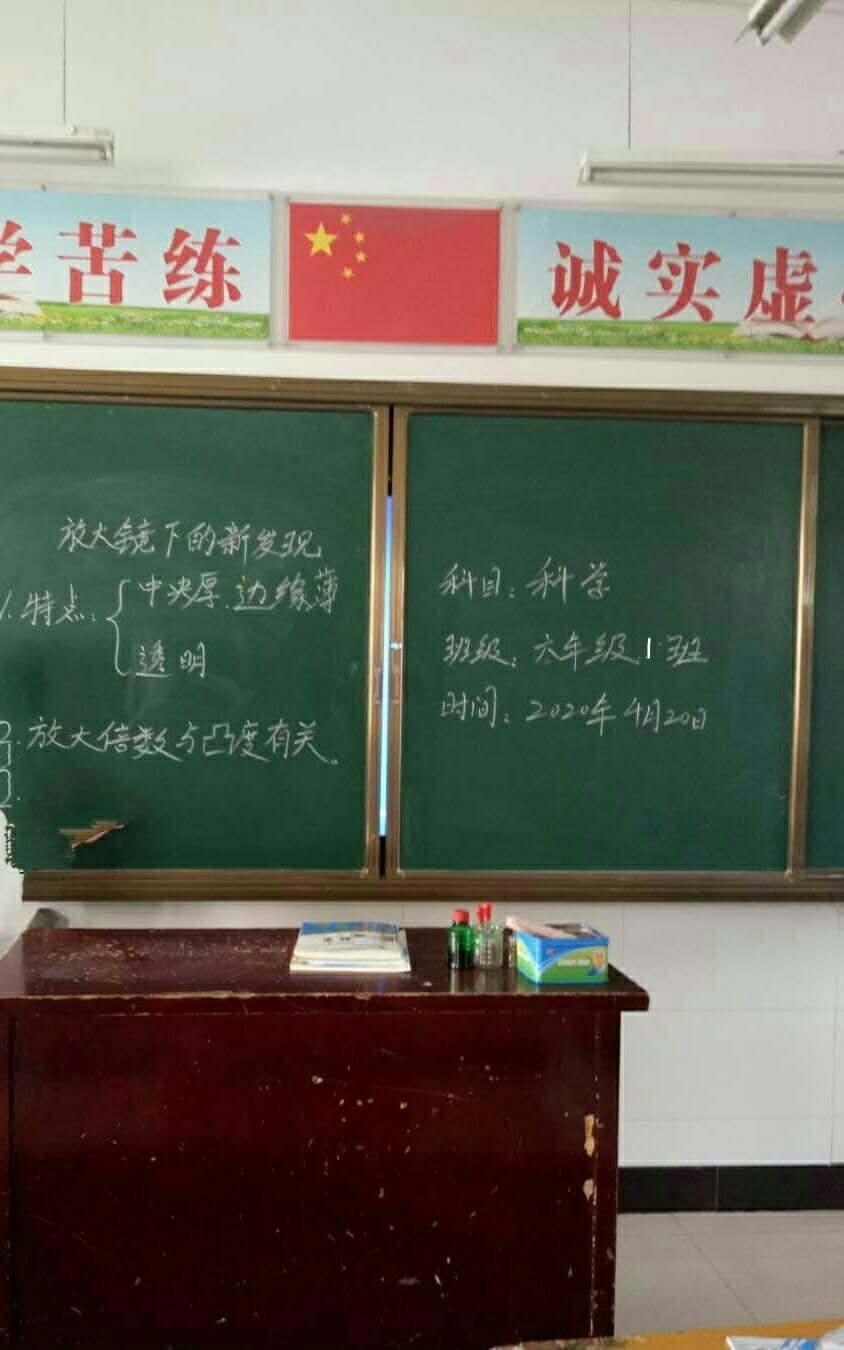 苦练
诚实虚
放大镜下的新发现
1.特点：
中央厚.边缘薄
透明
2.放大倍数与凸度有关。
科目：科学
班级：六年级.1班
时间：2020年4月20日